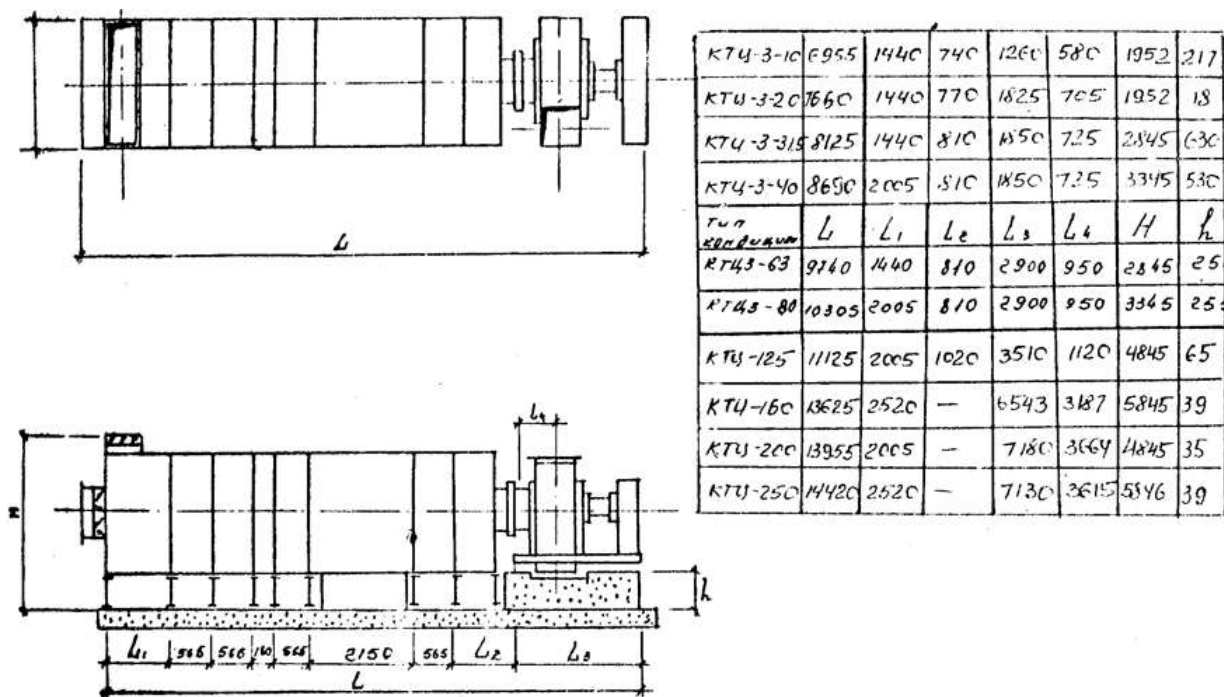 L
КТЦ-3-10 6955 1440 740 1260 580 1952 217
КТЦ-3-20 7660 1440 770 1825 705 1952 18
КТЦ-3-31,5 8125 1440 810 1850 725 2845 630
КТЦ-3-40 8690 2005 810 1850 725 3345 530
Тип L L₁ L₂ L₃ L₄ H h
КТЦ3-63 9740 1440 810 2900 950 2845 25
КТЦ3-80 10305 2005 810 2900 950 3345 25
КТЦ-125 11125 2005 1020 3510 1120 4845 65
КТЦ-160 13625 2520 — 6543 3187 5845 39
КТЦ-200 13955 2005 — 7180 3664 4845 35
КТЦ-250 14420 2520 — 7130 3615 5846 39
L₄
H
h
L₁ 565 565 565 2150 565 L₂ L₃
L